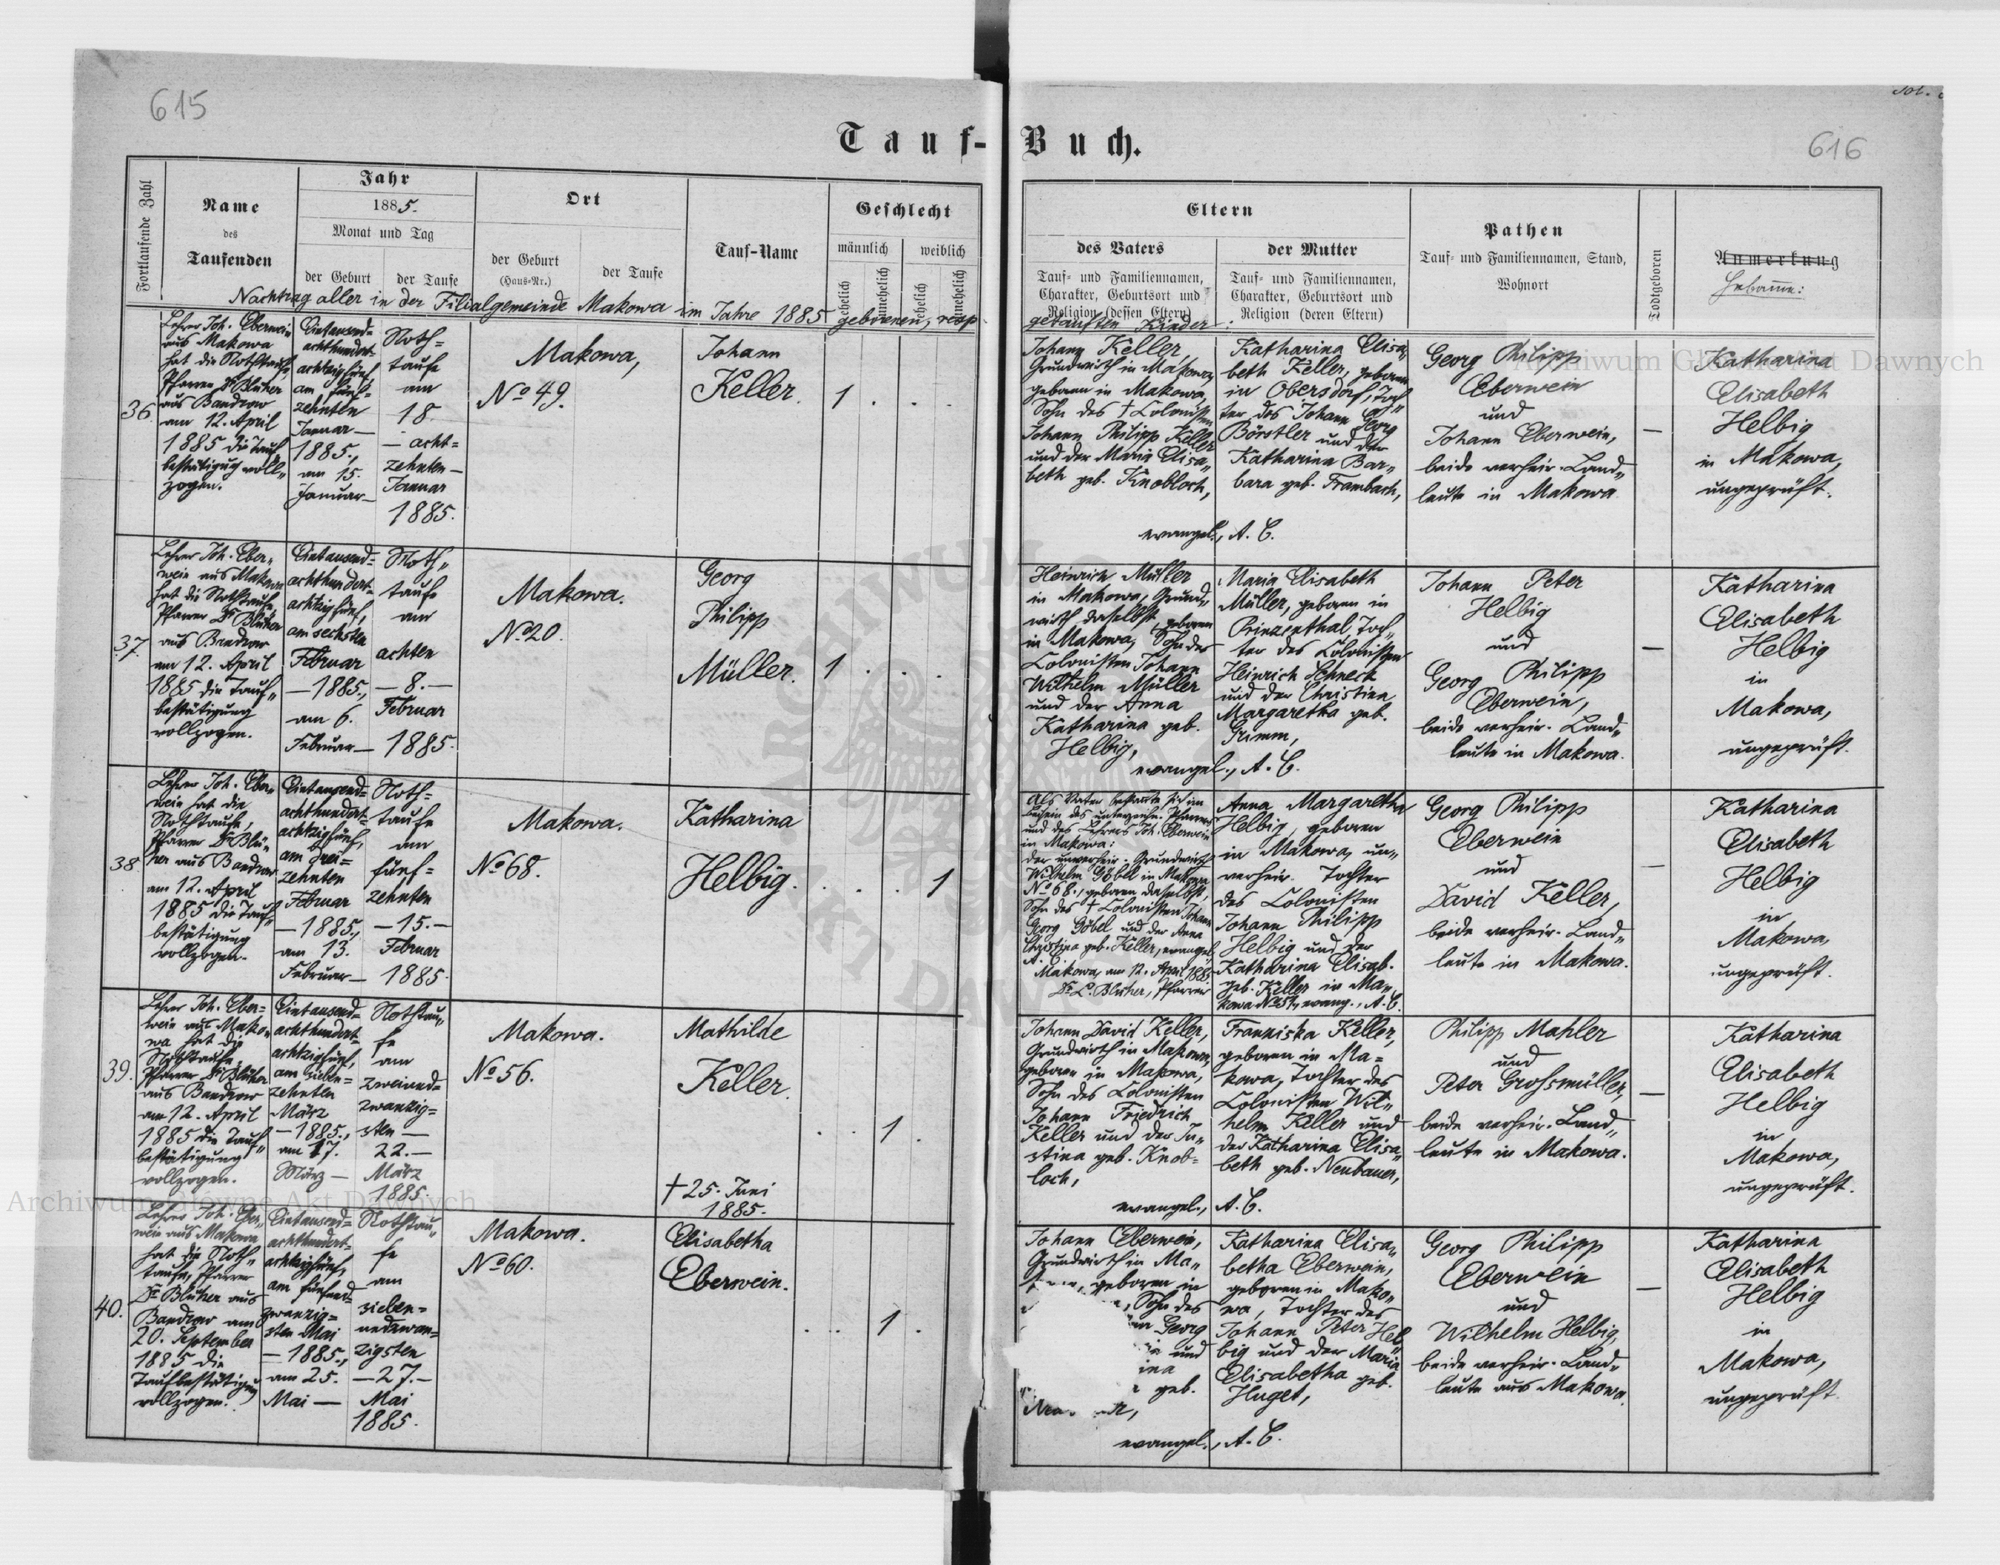 615
Tauf-Buch.
616
Fortlaufende Zahl
Name
des
Taufenden
Jahr
1885.
Monat und Tag
der Geburt
der Taufe
Ort
der Geburt
(Haus-Nr.)
der Taufe
Tauf-Name
Geschlecht
männlich
weiblich
ehelich
unehelich
ehelich
unehelich
Eltern
des Vaters
Tauf- und Familiennamen,
Charakter, Geburtsort und
Religion (dessen Eltern)
der Mutter
Tauf- und Familiennamen,
Charakter, Geburtsort und
Religion (deren Eltern)
Pathen
Tauf- und Familiennamen, Stand,
Wohnort
Todtgeboren
Anmerkung
Hebamme:
Nachtrag aller in der Filialgemeinde Makowa im Jahre 1885 geborenen, resp.
getauften Kinder:
36
Lehrer Joh. Eberwein
aus Makowa
hat die Nothtaufe
Pfarrer Dr Blüher
aus Bandrow
am 12. April
1885 die Tauf-
bestätigung voll-
zogen.
Eintausend-
achthundert-
achtzigfünf,
am fünf-
zehnten
Januar —
1885.,
am 15.
Januar —
Noth-
taufe
am
18.
— acht-
zehnten —
Januar
1885.
Makowa,
No 49.
Johann
Keller.
1 . . .
Johann Keller,
Grundwirth in Makowa,
geboren in Makowa,
Sohn des † Colonisten
Johann Philipp Keller
und der Maria Elisa-
beth geb. Knobloch,
Katharina Elisa-
beth Keller, geboren
in Obersdorf, Toch-
ter des Johann Georg
Börstler und der
Katharina Bar-
bara geb. Frambach,
evangel., A. C.
Georg Philipp
Eberwein
und
Johann Eberwein,
beide verheir. Land-
leute in Makowa.
—
Katharina
Elisabeth
Helbig
in Makowa,
ungeprüft.
37.
Lehrer Joh. Eber-
wein aus Makowa
hat die Nothtaufe,
Pfarrer Dr Blüher
aus Bandrow
am 12. April
1885 die Tauf-
bestätigung
vollzogen.
Eintausend-
achthundert-
achtzigfünf,
am sechsten
Februar
— 1885.,
am 6.
Februar —
Noth-
taufe
am
achten
— 8. —
Februar
1885.
Makowa.
No 20.
Georg
Philipp
Müller.
1 . . .
Heinrich Müller
in Makowa, Grund-
wirth daselbst, geboren
in Makowa, Sohn des
Colonisten Johann
Wilhelm Müller
und der Anna
Katharina geb.
Helbig,
Maria Elisabeth
Müller, geboren in
Prinzenthal, Toch-
ter des Colonisten
Heinrich Schneck
und der Christina
Margaretha geb.
Grimm,
evangel., A. C.
Johann Peter
Helbig
und
Georg Philipp
Eberwein,
beide verheir. Land-
leute in Makowa.
—
Katharina
Elisabeth
Helbig
in
Makowa,
ungeprüft.
38.
Lehrer Joh. Eber-
wein hat die
Nothtaufe,
Pfarrer Dr Blü-
her aus Bandrow
am 12. April
1885 die Tauf-
bestätigung
vollzogen.
Eintausend-
achthundert-
achtzigfünf,
am drei-
zehnten
Februar
— 1885.,
am 13.
Februar —
Noth-
taufe
am
fünf-
zehnten
— 15. —
Februar
1885.
Makowa.
No 68.
Katharina
Helbig.
. . . 1
Als Vater bekannte sich im
Beisein des unterzeichn. Pfarrers
und des Lehrers Joh. Eberwein
in Makowa:
der unverheir. Grundwirth
Wilhelm Göbel in Makowa
No 68., geboren daselbst,
Sohn des † Colonisten Johann
Georg Göbel und der Anna
Christina geb. Keller, evangel.
A. C.
Makowa, am 12. April 1885
Dr. L. Blüher, Pfarrer
Anna Margaretha
Helbig, geboren
in Makowa, un-
verheir. Tochter
des Colonisten
Johann Philipp
Helbig und der
Katharina Elisab.
geb. Keller in Ma-
kowa No 51., evang., A. C.
Georg Philipp
Eberwein
und
David Keller,
beide verheir. Land-
leute in Makowa.
—
Katharina
Elisabeth
Helbig
in
Makowa,
ungeprüft.
39.
Lehrer Joh. Eber-
wein aus Mako-
wa hat die
Nothtaufe,
Pfarrer Dr Blüher
aus Bandrow
am 12. April
1885 die Tauf-
bestätigung
vollzogen.
Eintausend-
achthundert-
achtzigfünf,
am sieben-
zehnten
März
— 1885.,
am 17.
März —
Nothtau-
fe
am
zweiund-
zwanzig-
sten —
22. —
März
1885.
Makowa.
No 56.
Mathilde
Keller.
† 25. Juni
1885.
. . 1 .
Johann David Keller,
Grundwirth in Makowa,
geboren in Makowa,
Sohn des Colonisten
Johann Friedrich
Keller und der Ju-
stina geb. Knob-
loch,
Franziska Keller,
geboren in Ma-
kowa, Tochter des
Colonisten Wil-
helm Keller und
der Katharina Elisa-
beth geb. Neubauer,
evangel., A. C.
Philipp Mahler
und
Peter Grossmüller,
beide verheir. Land-
leute in Makowa.
—
Katharina
Elisabeth
Helbig
in
Makowa,
ungeprüft.
40.
Lehrer Joh. Eber-
wein aus Makowa
hat die Noth-
taufe, Pfarrer
Dr. Blüher aus
Bandrow am
20. September
1885 die
Taufbestätigung
vollzogen.
Eintausend-
achthundert-
achtzigfünf,
am fünfund-
zwanzig-
sten Mai
— 1885.,
am 25.
Mai —
Nothtau-
fe
am
sieben-
undzwan-
zigsten
— 27. —
Mai
1885.
Makowa.
No 60.
Elisabetha
Eberwein.
. . 1 .
Johann Eberwein,
Grundwirth in Ma-
geboren in
, Sohn des
Georg
und
geb.
Katharina Elisa-
betha Eberwein,
geboren in Mako-
wa, Tochter des
Johann Peter Hel-
big und der Maria
Elisabetha geb.
Huget,
evangel., A. C.
Georg Philipp
Eberwein
und
Wilhelm Helbig,
beide verheir. Land-
leute aus Makowa.
—
Katharina
Elisabeth
Helbig
in
Makowa,
ungeprüft.
Archiwum Główne Akt Dawnych
Archiwum Główne Akt Dawnych
ARCHIWUM
AKT DAWNYCH